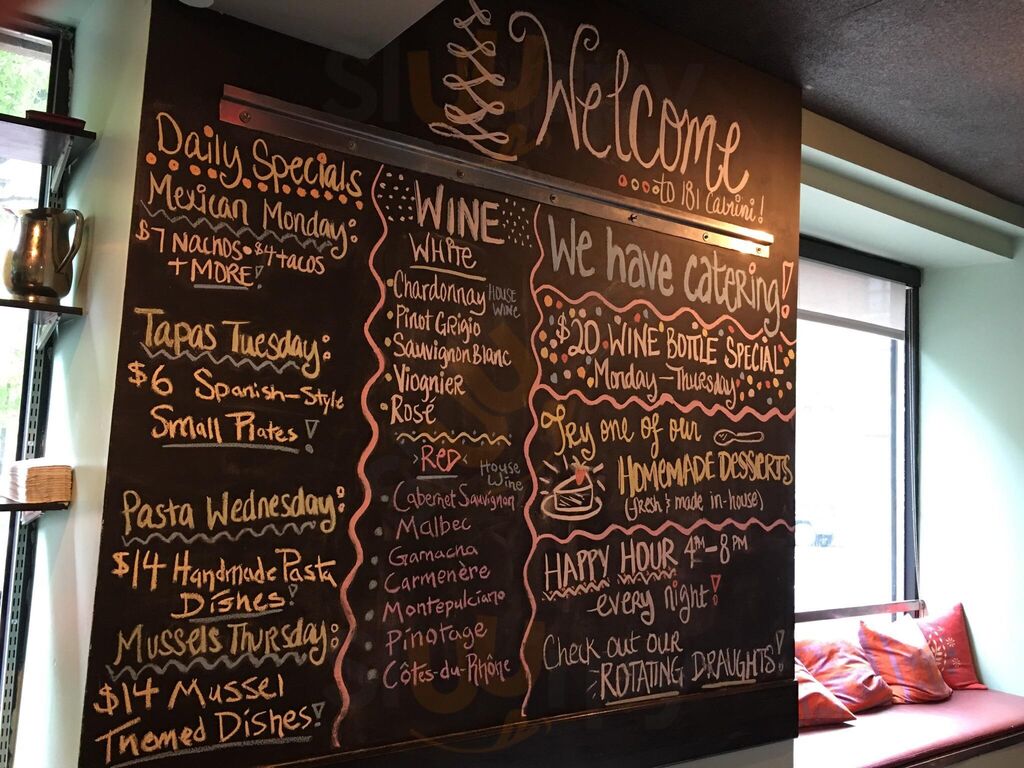 Welcome
to 181 Cabrini!
Daily Specials
Mexican Monday:
$7 Nachos • $4 tacos
+ MORE!
Tapas Tuesday:
$6 Spanish-Style
Small Plates!
Pasta Wednesday:
$14 Handmade Pasta
Dishes!
Mussels Thursday:
$14 Mussel
Themed Dishes!
WINE
WHITE
• Chardonnay HOUSE WINE
• Pinot Grigio
• Sauvignon Blanc
• Viognier
• Rosé
RED
House Wine
• Cabernet Sauvignon
• Malbec
• Garnacha
• Carmenère
• Montepulciano
• Pinotage
• Côtes-du-Rhône
We have catering!
$20 WINE BOTTLE SPECIAL
Monday-Thursday
Try one of our
HOMEMADE DESSERTS
(fresh & made in-house)
HAPPY HOUR 4PM-8PM
every night!
Check out our
ROTATING DRAUGHTS!